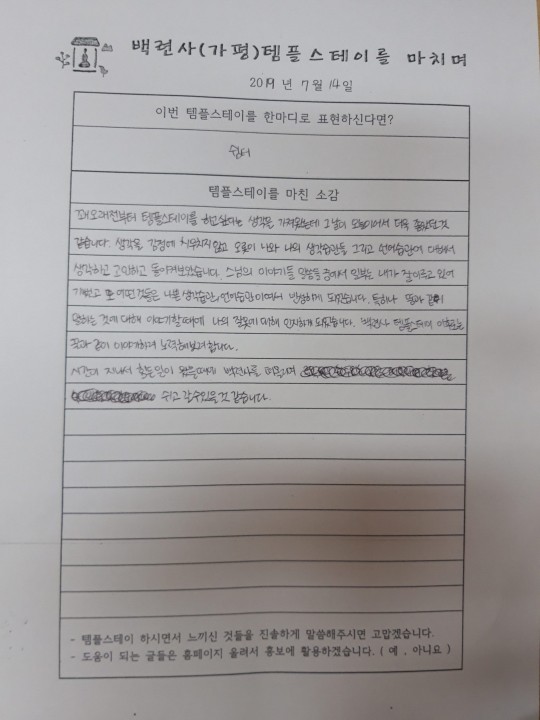 백련사(가평)템플스테이를 마치며
2019 년 7 월 14 일
이번 템플스테이를 한마디로 표현하신다면?
쉼터
템플스테이를 마친 소감
꽤 오래전부터 템플스테이를 하고싶다는 생각을 가져왔는데 그날이 오늘이어서 더욱 좋았던것
같습니다. 생각을 감정에 치우치지않고 오롯이 나와 나의 생각습관들 그리고 언어습관에 대해서
생각하고 고민하고 돌아켜보았습니다. 스님의 이야기들 말씀들중에서 일부는 내가 잘이루고 있어
기뻤고 또 어떤것들은 나쁜 생각습관,언어습관이여서 반성하게 되었습니다. 특히나 같이
말하는 것에 대해 이야기할때에 나의 잘못에 대해 인지하게 되었습니다. 백련사 템플스테이 이후로는
같이 이야기하려 노력해보려합니다.
시간이 지나서 힘든일이 왔을때에 백련사를 떠올리며
쉬고 갈수있을것 같습니다.
- 템플스테이 하시면서 느끼신 것들을 진솔하게 말씀해주시면 고맙겠습니다.
- 도움이 되는 글들은 홈페이지 올려서 홍보에 활용하겠습니다. ( 예 , 아니요 )